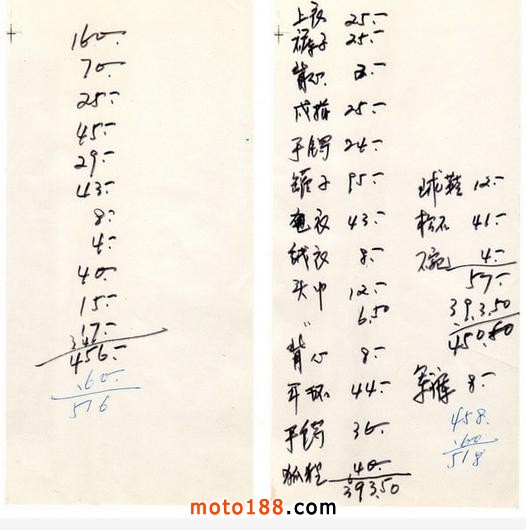 160.-
70.-
25.-
45.-
29.-
43.-
8.-
4.-
40.-
15.-
17.-
456.-
60.-
516
上衣 25.-
裤子 25.-
背心
戒指 25.-
24.-
95.-
43.-
绒衣 8.-
头巾 12.-
〃 6.50
背心 8.-
耳环 44.-
36.-
40.-
393.50
球鞋 12.-
4.-
57.-
393.50
8.-
458.
60
518
moto188.com